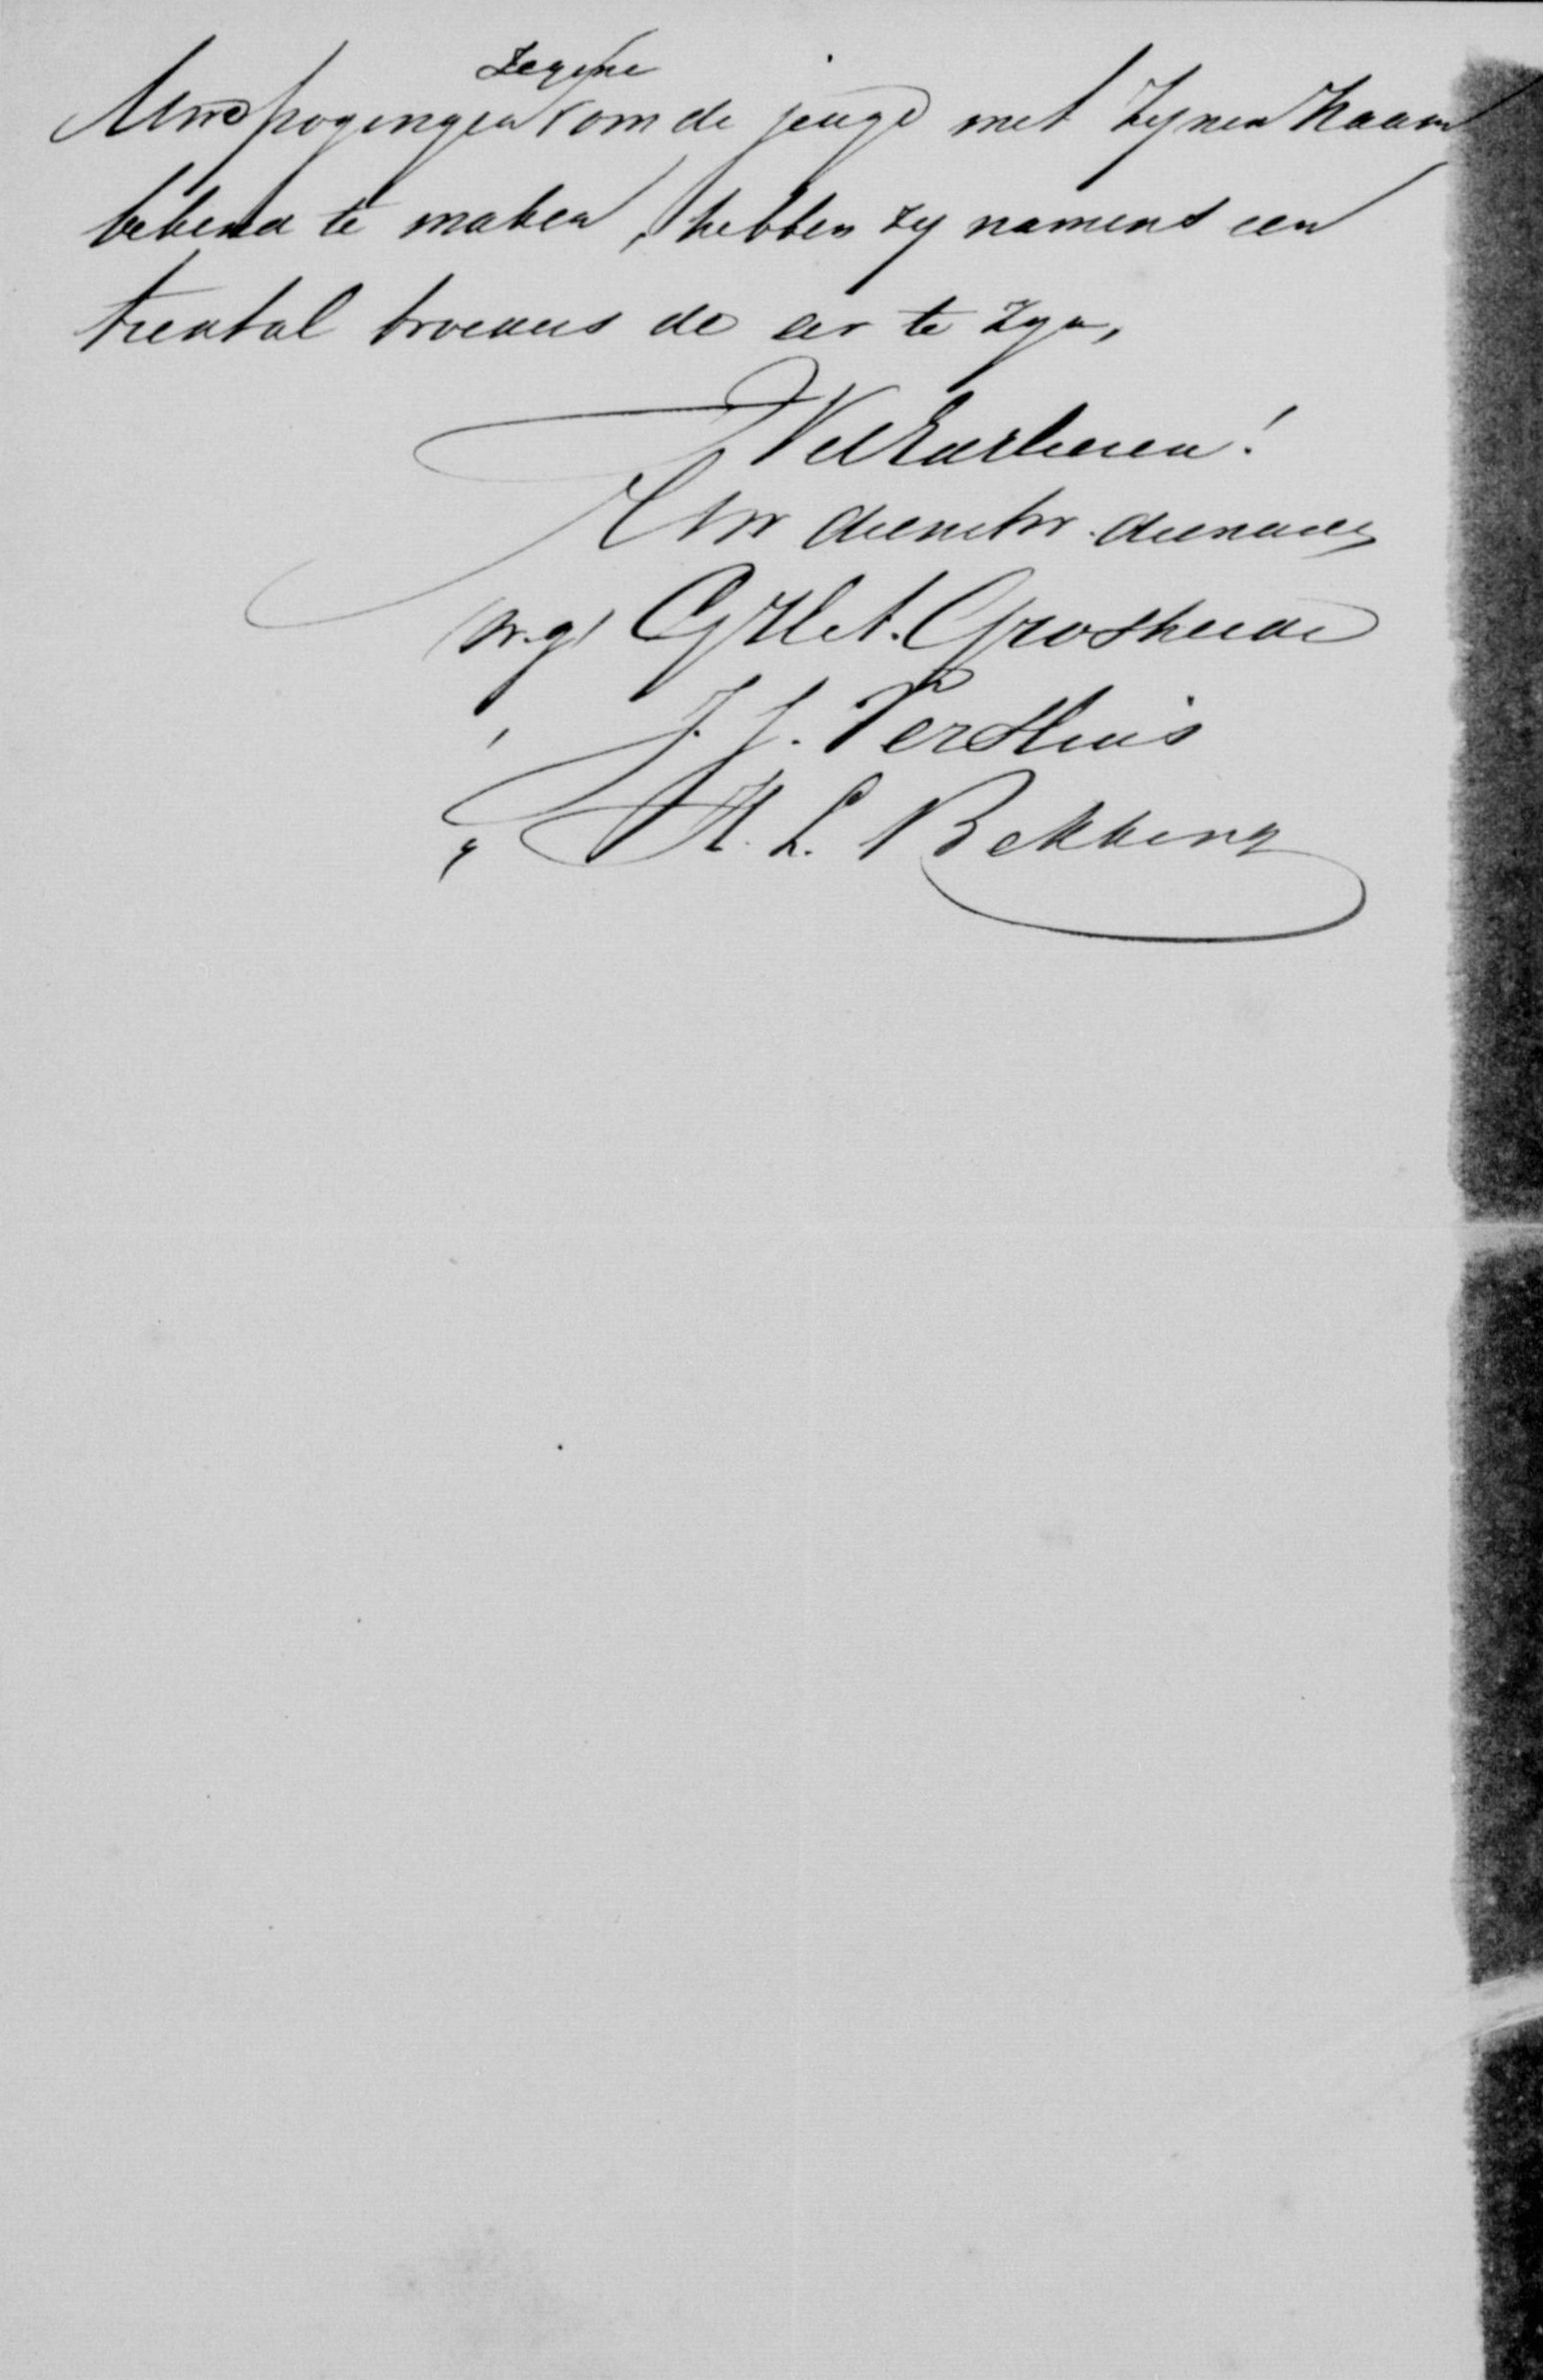 Uwe pogingen zegene om de jeugd met Zynen Naam
bekend te maken, hebben zy namens een
tiental broeders de eer te zyn,
WelEerheeren!
Uw dienstw. dienaren
(w.g) Grosheide
" J. J. Ter Huis
" H. L. Bekking